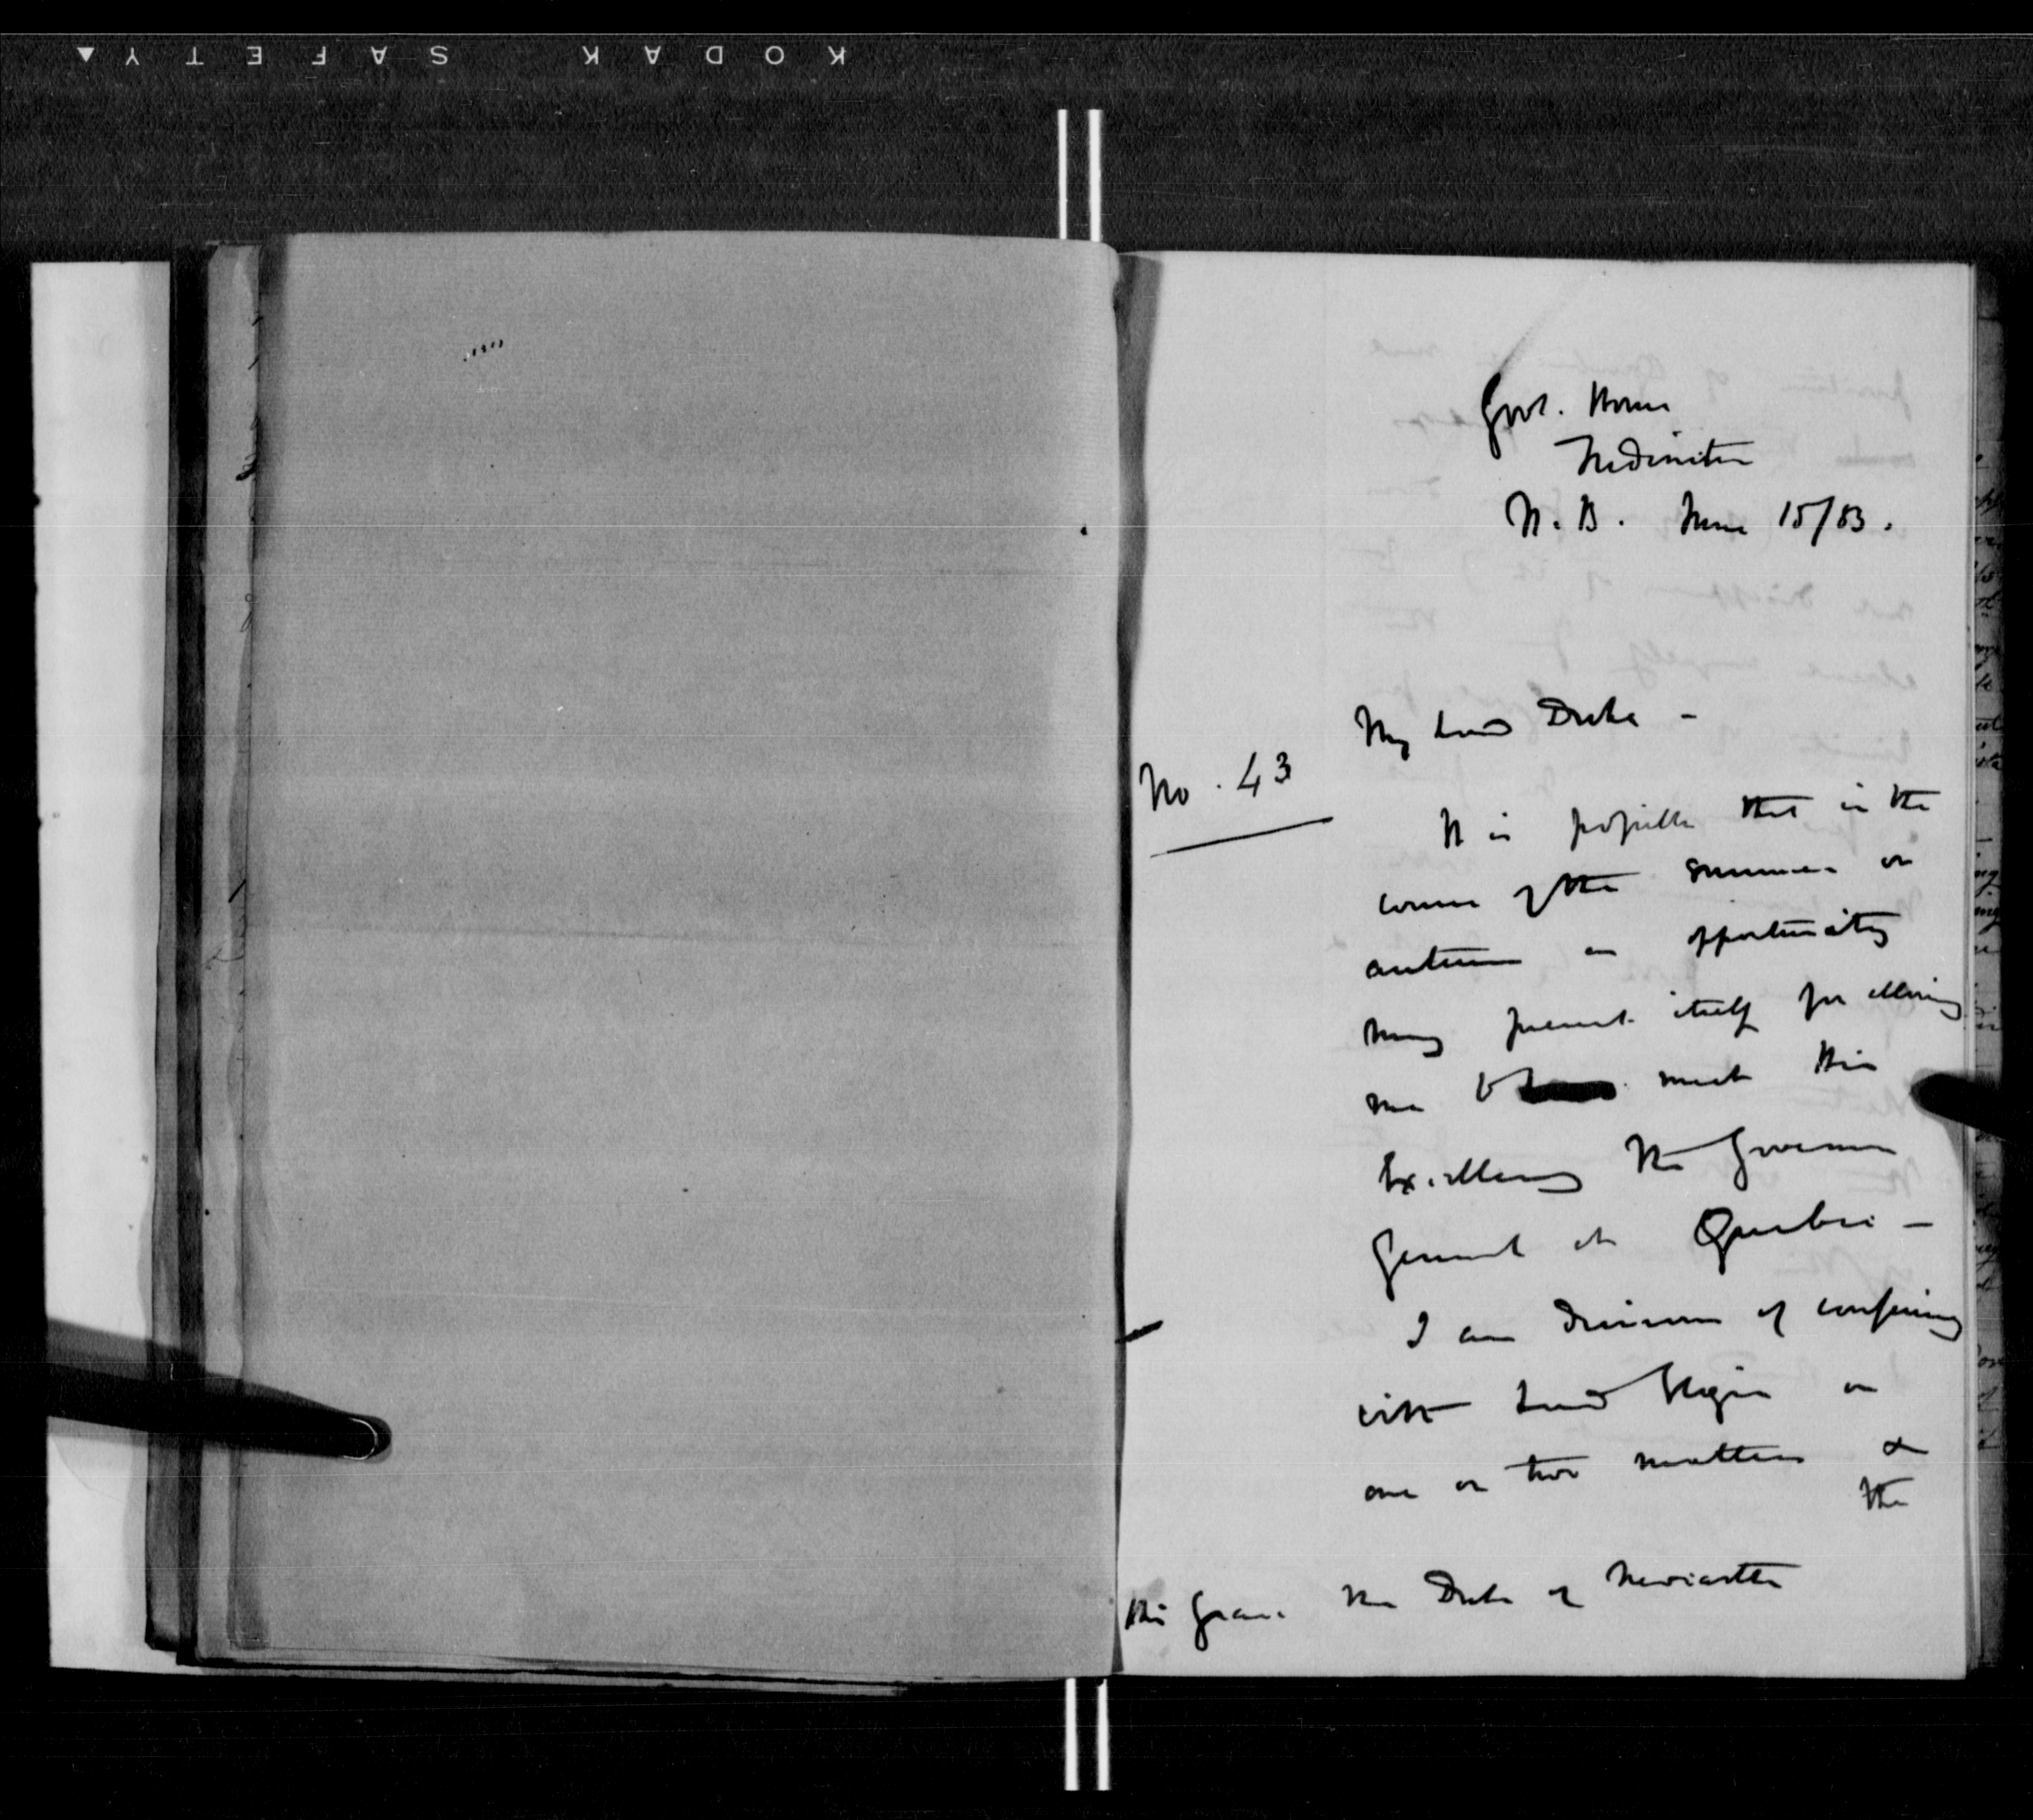 KODAK SAFETY
Govt. House
Fredericton
N. B. June 15/53.
My Lord Duke -
No. 43
It is possible that in the
course of the summer or
autumn an opportunity
may present itself for allowing
me to meet His
Excellency the Governor
General at Quebec -
I am desirous of conferring
with Lord Elgin on
one or two matters &
the
His Grace the Duke of Newcastle